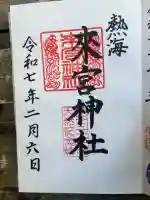 熱海
來宮神社
令和七年二月六日